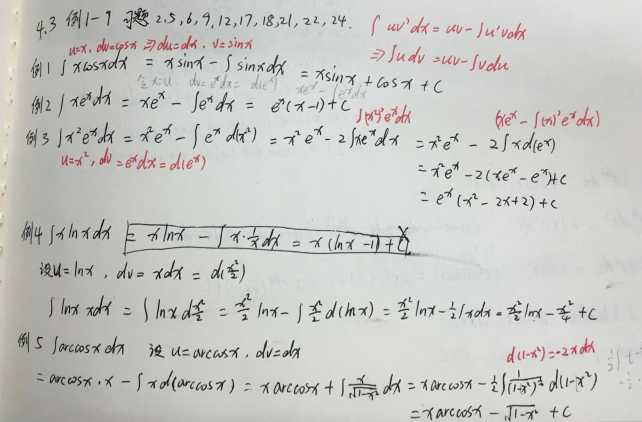 4.3 例1-9 习题 2.5,6,9,12,17,18,21,22,24. ∫uv'dx = uv - ∫u'vdx
u=x, dv=cosx ⇒ du=dx, v=sinx ⇒ ∫udv = uv - ∫vdu
例1 ∫xcosxdx = xsinx - ∫sinxdx = xsinx + cosx + C
例2 ∫xe^x dx = xe^x - ∫e^x dx = e^x(x-1)+C
∫(x²)'e^x dx (xe^x - ∫(x)'e^x dx)
例3 ∫x²e^x dx = x²e^x - ∫e^x d(x²) = x²e^x - 2∫xe^x dx = x²e^x - 2∫xd(e^x)
u=x², dv=e^x dx = d(e^x) = x²e^x - 2(xe^x - e^x)+C
= e^x(x² - 2x+2)+C
例4 ∫xlnxdx = xlnx - ∫x·1/x dx = x(lnx-1)+C
设u=lnx, dv=xdx = d(x²/2)
∫lnx xdx = ∫lnx d x²/2 = x²/2 lnx - ∫x²/2 d(lnx) = x²/2 lnx - 1/2∫xdx = x²/2 lnx - x²/4 + C
例5 ∫arccosxdx 设 u=arccosx, dv=dx d(1-x²)=-2xdx
= arccosx·x - ∫xd(arccosx) = xarccosx + ∫x/√(1-x²) dx = xarccosx - 1/2∫1/(1-x²)^½ d(1-x²)
= xarccosx - √(1-x²) + C